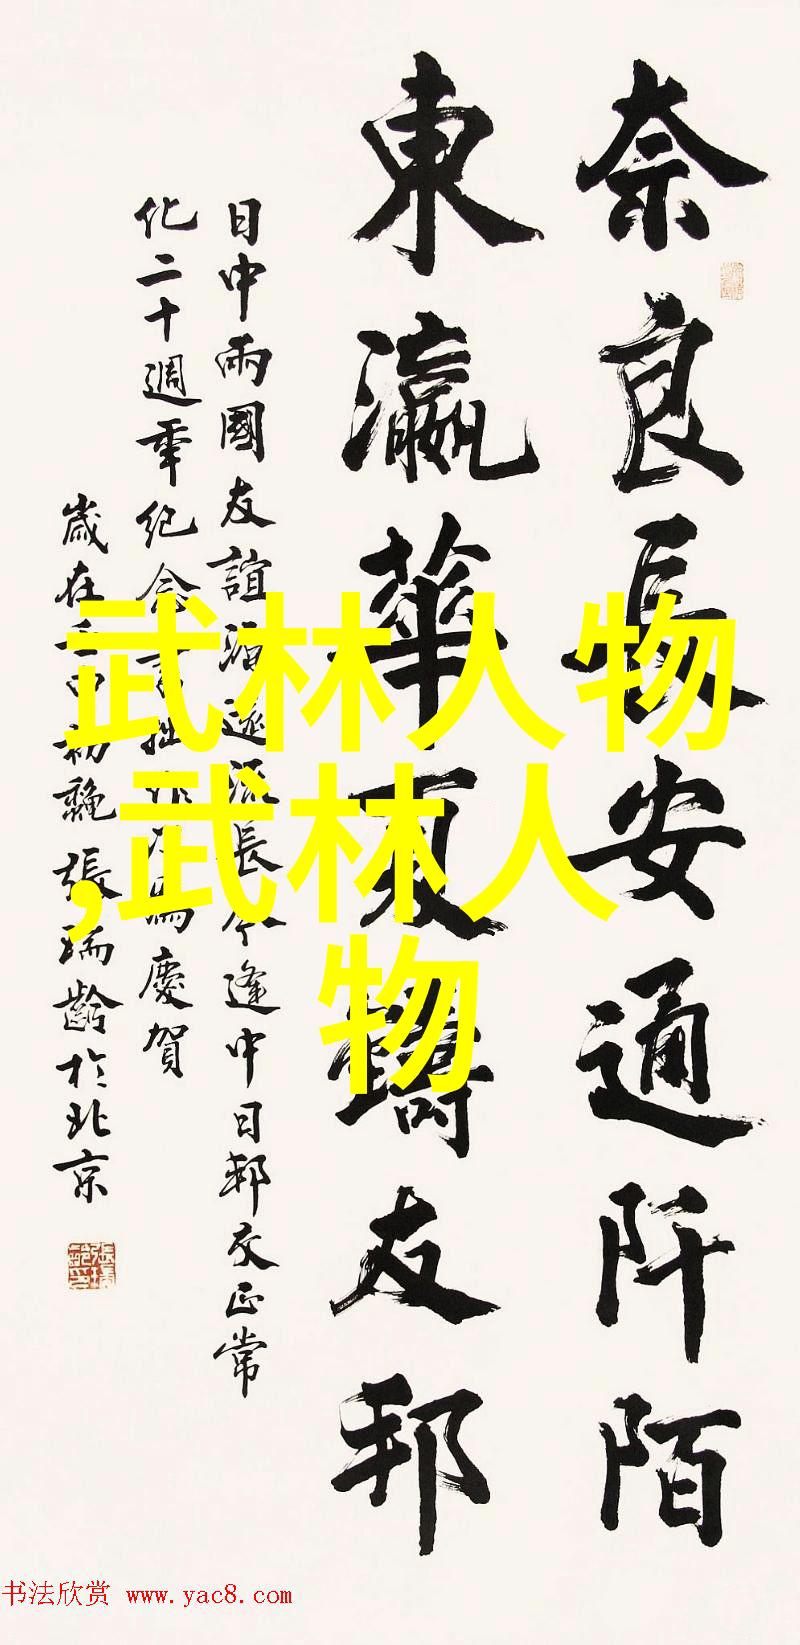 奈良長安通阡陌
東瀛華夏鑄友邦
日中兩國友誼源遠流長今逢中日邦交正常
化二十週年紀念書拙作乃為慶賀
歲在壬申初龝張瑞齡於北京
武林人物
,武林人
物
书法欣赏 www.yac8.com